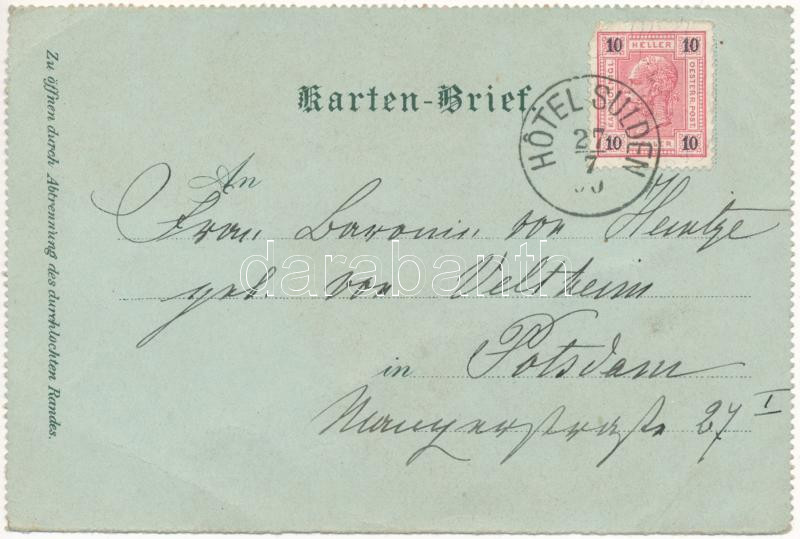 Karten-Brief.
10 HELLER 10
OESTERR. POST.
10 HELLER 10
HÔTEL SULDEN
27
7
00
An
Frau Baronin von Heintze
geb. von Veltheim
in Potsdam
Mangerstraße 27 I
Zu öffnen durch Abtrennung des durchlochten Randes.
darabanth